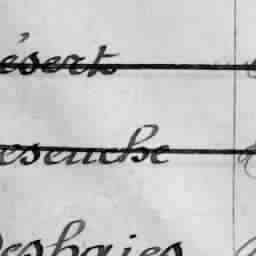 ésert
eseuche
eshaies